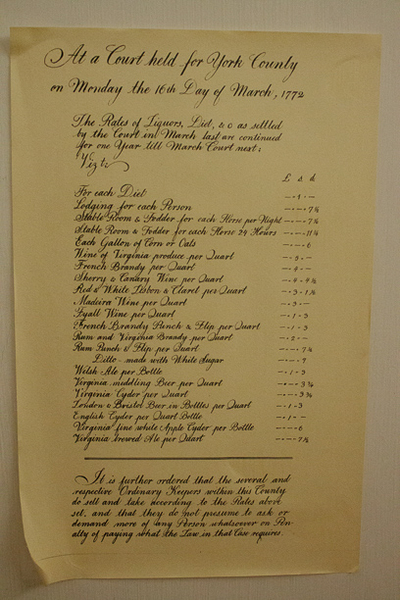 At a Court held for York County
on Monday the 16th Day of March, 1772
The Rates of Liquors, Diet, &c as settled
by the Court in March last are continued
for one Year till March Court next:
Vizt:
£ s d
For each Diet -1-
Lodging for each Person
Stable Room & Fodder for each Horse per Night
Stable Room & Fodder for each Horse 24 Hours
Each Gallon of Corn or Oats 6
Wine of Virginia produce per Quart
French Brandy per Quart
Sherry & Canary Wine per Quart
Red & White Lisbon & Claret per Quart
Madeira Wine per Quart
Fyall Wine per Quart -1-3
French Brandy Punch & Flip per Quart -1-3
Rum and Virginia Brandy per Quart -2-
Rum Punch & Flip per Quart
Ditto - made with White Sugar
Welsh Ale per Bottle -1-3
Virginia middling Beer per Quart
Virginia Cyder per Quart
London & Bristol Beer in Bottles per Quart -1-3
English Cyder per Quart Bottle -1-
Virginia fine white Apple Cyder per Bottle 6
Virginia brewed Ale per Quart
It is further ordered that the several and
respective Ordinary Keepers within this County
do sell and take according to the Rates above
set, and that they do not presume to ask or
demand more of any Person whatsoever on Pen-
alty of paying what the Law in that Case requires.